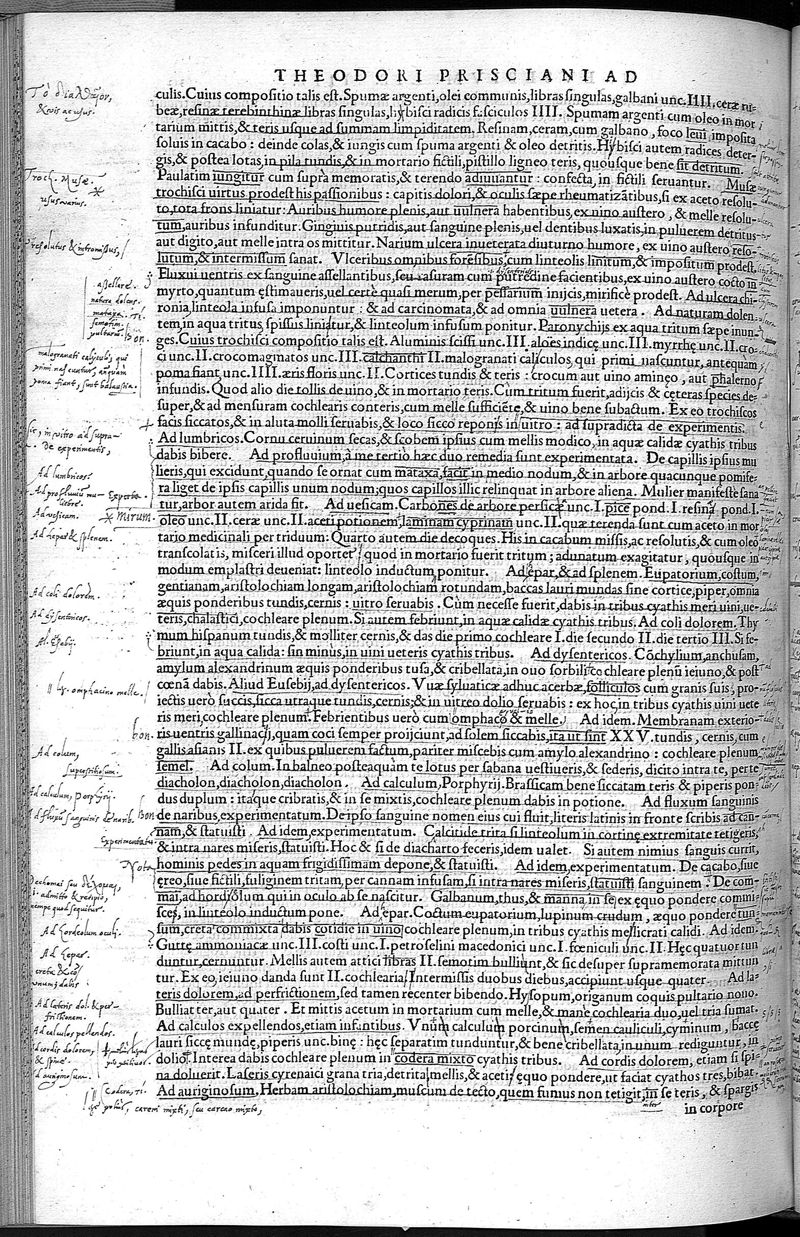 THEODORI PRISCIANI AD
culis. Cuius compositio talis est. Spumæ argenti, olei communis, libras singulas, galbani unc. IIII. ceræ ru-
beæ, resinæ terebinthinæ libras singulas, hybisci radicis fasciculos IIII. Spumam argenti cum oleo in mor
tarium mittis, & teris usque ad summam limpiditatem. Resinam, ceram, cum galbano, foco leui imposita
soluis in cacabo: deinde colas, & iungis cum spuma argenti & oleo detritis. Hybisci autem radices deter-
gis, & postea lotas in pila tundis, & in mortario fictili, pistillo ligneo teris, quousque bene sit detritum.
Paulatim iungitur cum supra memoratis, & terendo adiuuantur: confecta, in fictili seruantur. Musæ
trochisci uirtus prodest his passionibus: capitis dolori, & oculis sæpe rheumatizãtibus, si ex aceto resolu-
to, tota frons liniatur: Auribus humore plenis, aut uulnera habentibus, ex uino austero, & melle resolu-
tum, auribus infunditur. Gingiuis putridis, aut sanguine plenis, uel dentibus luxatis, in puluerem detritus
aut digito, aut melle intra os mittitur. Narium ulcera inueterata diuturno humore, ex uino austero reso-
lutum, & intermissum sanat. Vlceribus omnibus forēsibus, cum linteolis linitum, & impositum prodest.
Fluxui uentris ex sanguine assellantibus, seu rasuram cum putredine facientibus, ex uino austero cocto in
myrto, quantum ęstimaueris, uel certè quasi merum, per pessarium inijcis, mirificè prodest. Ad ulcera chi-
ronia, linteola infusa imponuntur: & ad carcinomata, & ad omnia uulnera uetera. Ad naturam dolen
tem, in aqua tritus spissus liniatur, & linteolum infusum ponitur. Paronychijs ex aqua tritum sæpe inun
ges. Cuius trochisci compositio talis est. Aluminis scissi unc. III. aloes indicę unc. III. myrrhę unc. II. cro-
ci unc. II. crocomagmatos unc. III. calchanthi II. malogranati caliculos, qui primi nascuntur, antequam
poma fiant, unc. IIII. æris floris unc. II. Cortices tundis & teris: crocum aut uino amineo, aut phalerno
infundis. Quod alio die tollis de uino, & in mortario teris. Cum tritum fuerit, adijcis & cęteras species de-
super, & ad mensuram cochlearis conteris, cum melle sufficiēte, & uino bene subactum. Ex eo trochiscos
facis siccatos, & in aluta molli seruabis, & loco sicco reponis in uitro: ad supradicta de experimentis.
Ad lumbricos. Cornu ceruinum secas, & scobem ipsius cum mellis modico, in aquæ calidæ cyathis tribus
dabis bibere. Ad profluuium, à me tertiò hæc duo remedia sunt experimentata. De capillis ipsius mu
lieris, qui excidunt, quando se ornat cum mataxa, facit in medio nodum, & in arbore quacunque pomife-
ra liget de ipsis capillis unum nodum, quos capillos illic relinquat in arbore aliena. Mulier manifeste sana
tur, arbor autem arida fit. Ad uesicam. Carbones de arbore persicæ unc. I. pice pond. I. resinæ pond. I.
oleo unc. II. ceræ unc. II. aceti potionem, laminam cyprinam unc. II. quæ terenda sunt cum aceto in mor
tario medicinali per triduum: Quarto autem die decoques. His in cacabum missis, ac resolutis, & cum oleo
transcolatis, misceri illud oportet, quod in mortario fuerit tritum; adunatum exagitatur, quousque in
modum emplastri deueniat: linteolo inductum ponitur. Ad epar, & ad splenem. Eupatorium, costum,
gentianam, aristolochiam longam, aristolochiam rotundam, baccas lauri mundas sine cortice, piper, omnia
æquis ponderibus tundis, cernis: uitro seruabis. Cùm necesse fuerit, dabis in tribus cyathis meri uini, ue-
teris, chalastici, cochleare plenum. Si autem febriunt, in aquæ calidæ cyathis tribus. Ad coli dolorem. Thy
mum hispanum tundis, & molliter cernis, & das die primo cochleare I. die secundo II. die tertio III. Si fe-
briunt, in aqua calida: sin minus, in uini ueteris cyathis tribus. Ad dysentericos. Cōchylium, anchusam,
amylum alexandrinum æquis ponderibus tusa, & cribellata, in ouo sorbili cochleare plenū ieiuno, & post
cœnã dabis. Aliud Eusebij, ad dysentericos. Vuæ syluaticæ adhuc acerbæ, folliculos cum granis suis, pro-
iectis uerò succis, sicca utraque tundis, cernis, & in uitreo dolio seruabis: ex hoc, in tribus cyathis uini uete
ris meri, cochleare plenum. Febrientibus uerò cum omphaco & melle. Ad idem. Membranam exterio-
ris uentris gallinacij, quam coci semper proijciunt, ad solem siccabis, ita ut sint XXV. tundis, cernis, cum
gallis asianis II. ex quibus puluerem factum, pariter miscebis cum amylo alexandrino: cochleare plenum
semel. Ad colum. In balneo posteaquàm te lotus per sabana uestiueris, & sederis, dicito intra te, per te
diacholon, diacholon, diacholon. Ad calculum, Porphyrij. Brassicam bene siccatam teris & piperis pon-
dus duplum: itaque cribratis, & in se mixtis, cochleare plenum dabis in potione. Ad fluxum sanguinis
de naribus, experimentatum. De ipso sanguine nomen eius cui fluit, literis latinis in fronte scribis ad can-
nam, & statuisti. Ad idem, experimentatum. Calcitide trita si linteolum in cortinę extremitate tetigeris,
& intra nares miseris, statuisti. Hoc & si de diacharto feceris, idem ualet. Si autem nimius sanguis currit,
hominis pedes in aquam frigidissimam depone, & statuisti. Ad idem, experimentatum. De cacabo, siue
ęreo, siue fictili, fuliginem tritam, per cannam infusam, si intra nares miseris, statuisti sanguinem. De com-
mai, ad hordiolum qui in oculo ab se nascitur. Galbanum, thus, & manna in se, ex ęquo pondere commi
sces, in linteolo inductum pone. Ad epar. Costum eupatorium, lupinum crudum, æquo pondere tun
sum, creta commixta dabis cotidie in uino, cochleare plenum, in tribus cyathis mellicrati calidi. Ad idem.
Guttę ammoniacæ unc. III. costi unc. I. petroselini macedonici unc. I. fœniculi unc. II. Hęc quatuor tun
duntur, cernuntur. Mellis autem attici libras II. semotim bulliunt, & sic desuper supramemorata mittun
tur. Ex eo, ieiuno danda sunt II. cochlearia. Intermissis duobus diebus, accipiunt usque quater. Ad la-
teris dolorem, ad perfrictionem, sed tamen recenter bibendo. Hysopum, origanum coquis pultario nouo.
Bulliat ter, aut quater. Et mittis acetum in mortarium cum melle, & mane cochlearia duo, uel tria sumat.
Ad calculos expellendos, etiam infantibus. Vnum calculum porcinum, semen cauliculi, cyminum, baccę
lauri siccę mundę, piperis unc. binę: hęc separatim tunduntur, & bene cribellata, in unum rediguntur, in
dolio. Interea dabis cochleare plenum in codera mixto cyathis tribus. Ad cordis dolorem, etiam si spi-
na doluerit. Laseris cyrenaici grana tria, detrita, mellis, & aceti ęquo pondere, ut faciat cyathos tres, bibat.
Ad auriginosum, Herbam aristolochiam, muscum de tecto, quem fumus non tetigit, in se teris, & spargis
in corpore
Troch. Musæ
usus varius.
malogranati caliculos, qui
primi nascuntur, antequam
poma fiant, sunt balaustia.
de experimentis,
Ad lumbricos.
Experta.
Ad vesicam.
mirum.
Ad hepar & splenem.
Ad coli dolorem.
Ad dysentericos.
omphacino melle.
bon.
Ad colum,
superstitiosum.
Ad calculum, porphyrij.
bon
Experimentata
Nota
Ad hordeolum oculi.
Ad hepar.
Ad calculos pellendos.
Ad cordis dolorem,
& spinæ.
Ad auriginosum.